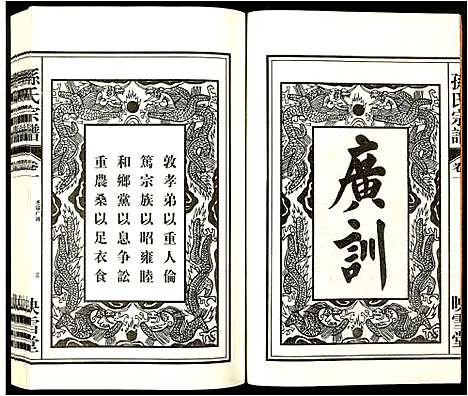 孫氏宗譜
卷一
映雪堂
廣訓
敦孝弟以重人倫
篤宗族以昭雍睦
和鄉黨以息爭訟
重農桑以足衣食
孫氏宗譜
卷一
映雪堂